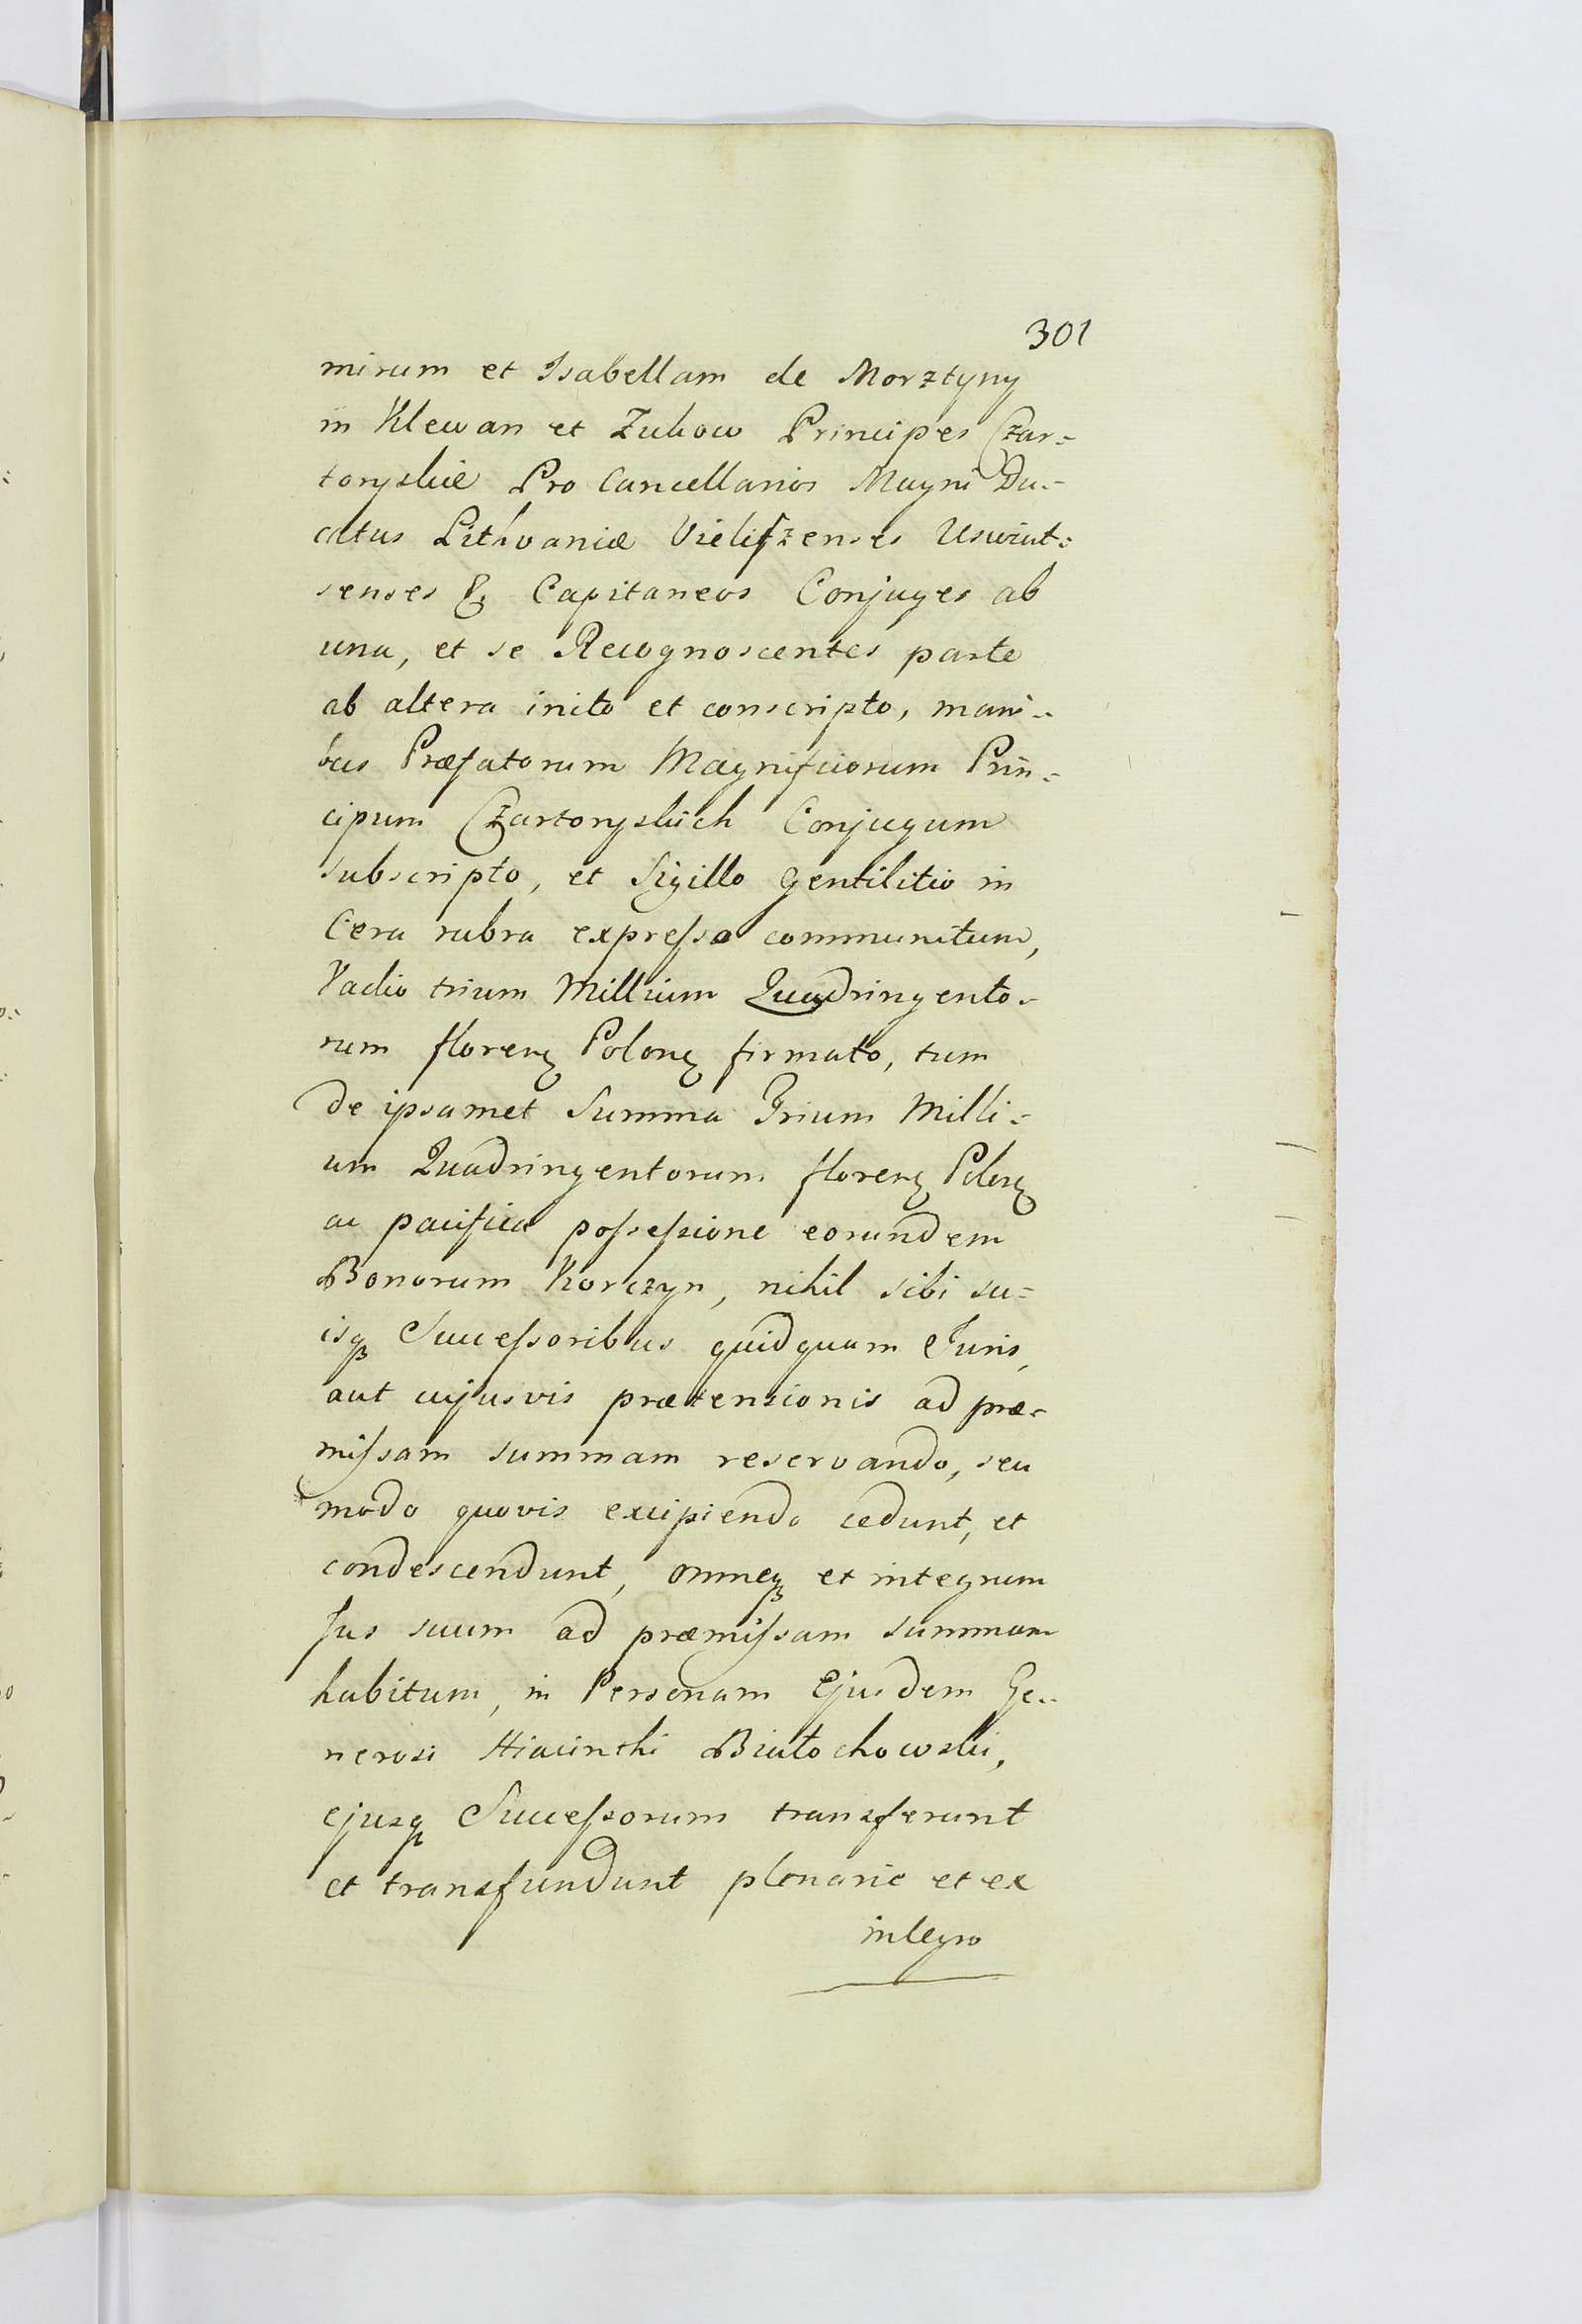 301
mirum et Isabellam de Morztyny
in Klewan et Zukow Principes Czar=
toryskie Pro Cancellarios Magni Du=
catus Lithvaniæ Vieliſzenses Uswiat=
senses & Capitaneos Conjuges ab
una, et se Recognoscentes parte
ab altera inito et conscripto, mani=
bus Præfatorum Magnificorum Prin=
cipum Czartoryskich Conjugum
subscripto, et Sigillo gentilitio in
Cera rubra expreſso communitum,
Vadio trium Millium Quadringento=
rum floren Polon firmato, tum
de ipsamet Summa Trium Milli=
um Quadringentorum floren Polon
ac pacifica poſseſsione eorundem
Bonorum Korczyn, nihil sibi su=
isq Succeſsoribus quidquam Juris,
aut cujusvis prætensionis ad præ=
miſsam summam reservando, seu
modo quovis excipiendo cedunt, et
condescendunt, omneq et integrum
Jus suum ad præmiſsam summam
habitum, in Personam Ejusdem Ge=
nerosi Hiacinthi Białochowski,
ejusq Succeſsorum transferunt
et transfundunt plenarie et ex
integro